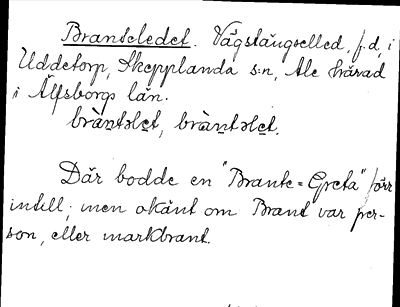 Branteledet. Vägstängselled, f.d. i
Uddetorp, Skepplanda s:n, Ale härad
i Älfsborgs län.
brànteḷet, bràntəlet.
Där bodde en "Brante=Greta" förr
intill; men okänt om Brant var per-
son, eller markbrant.